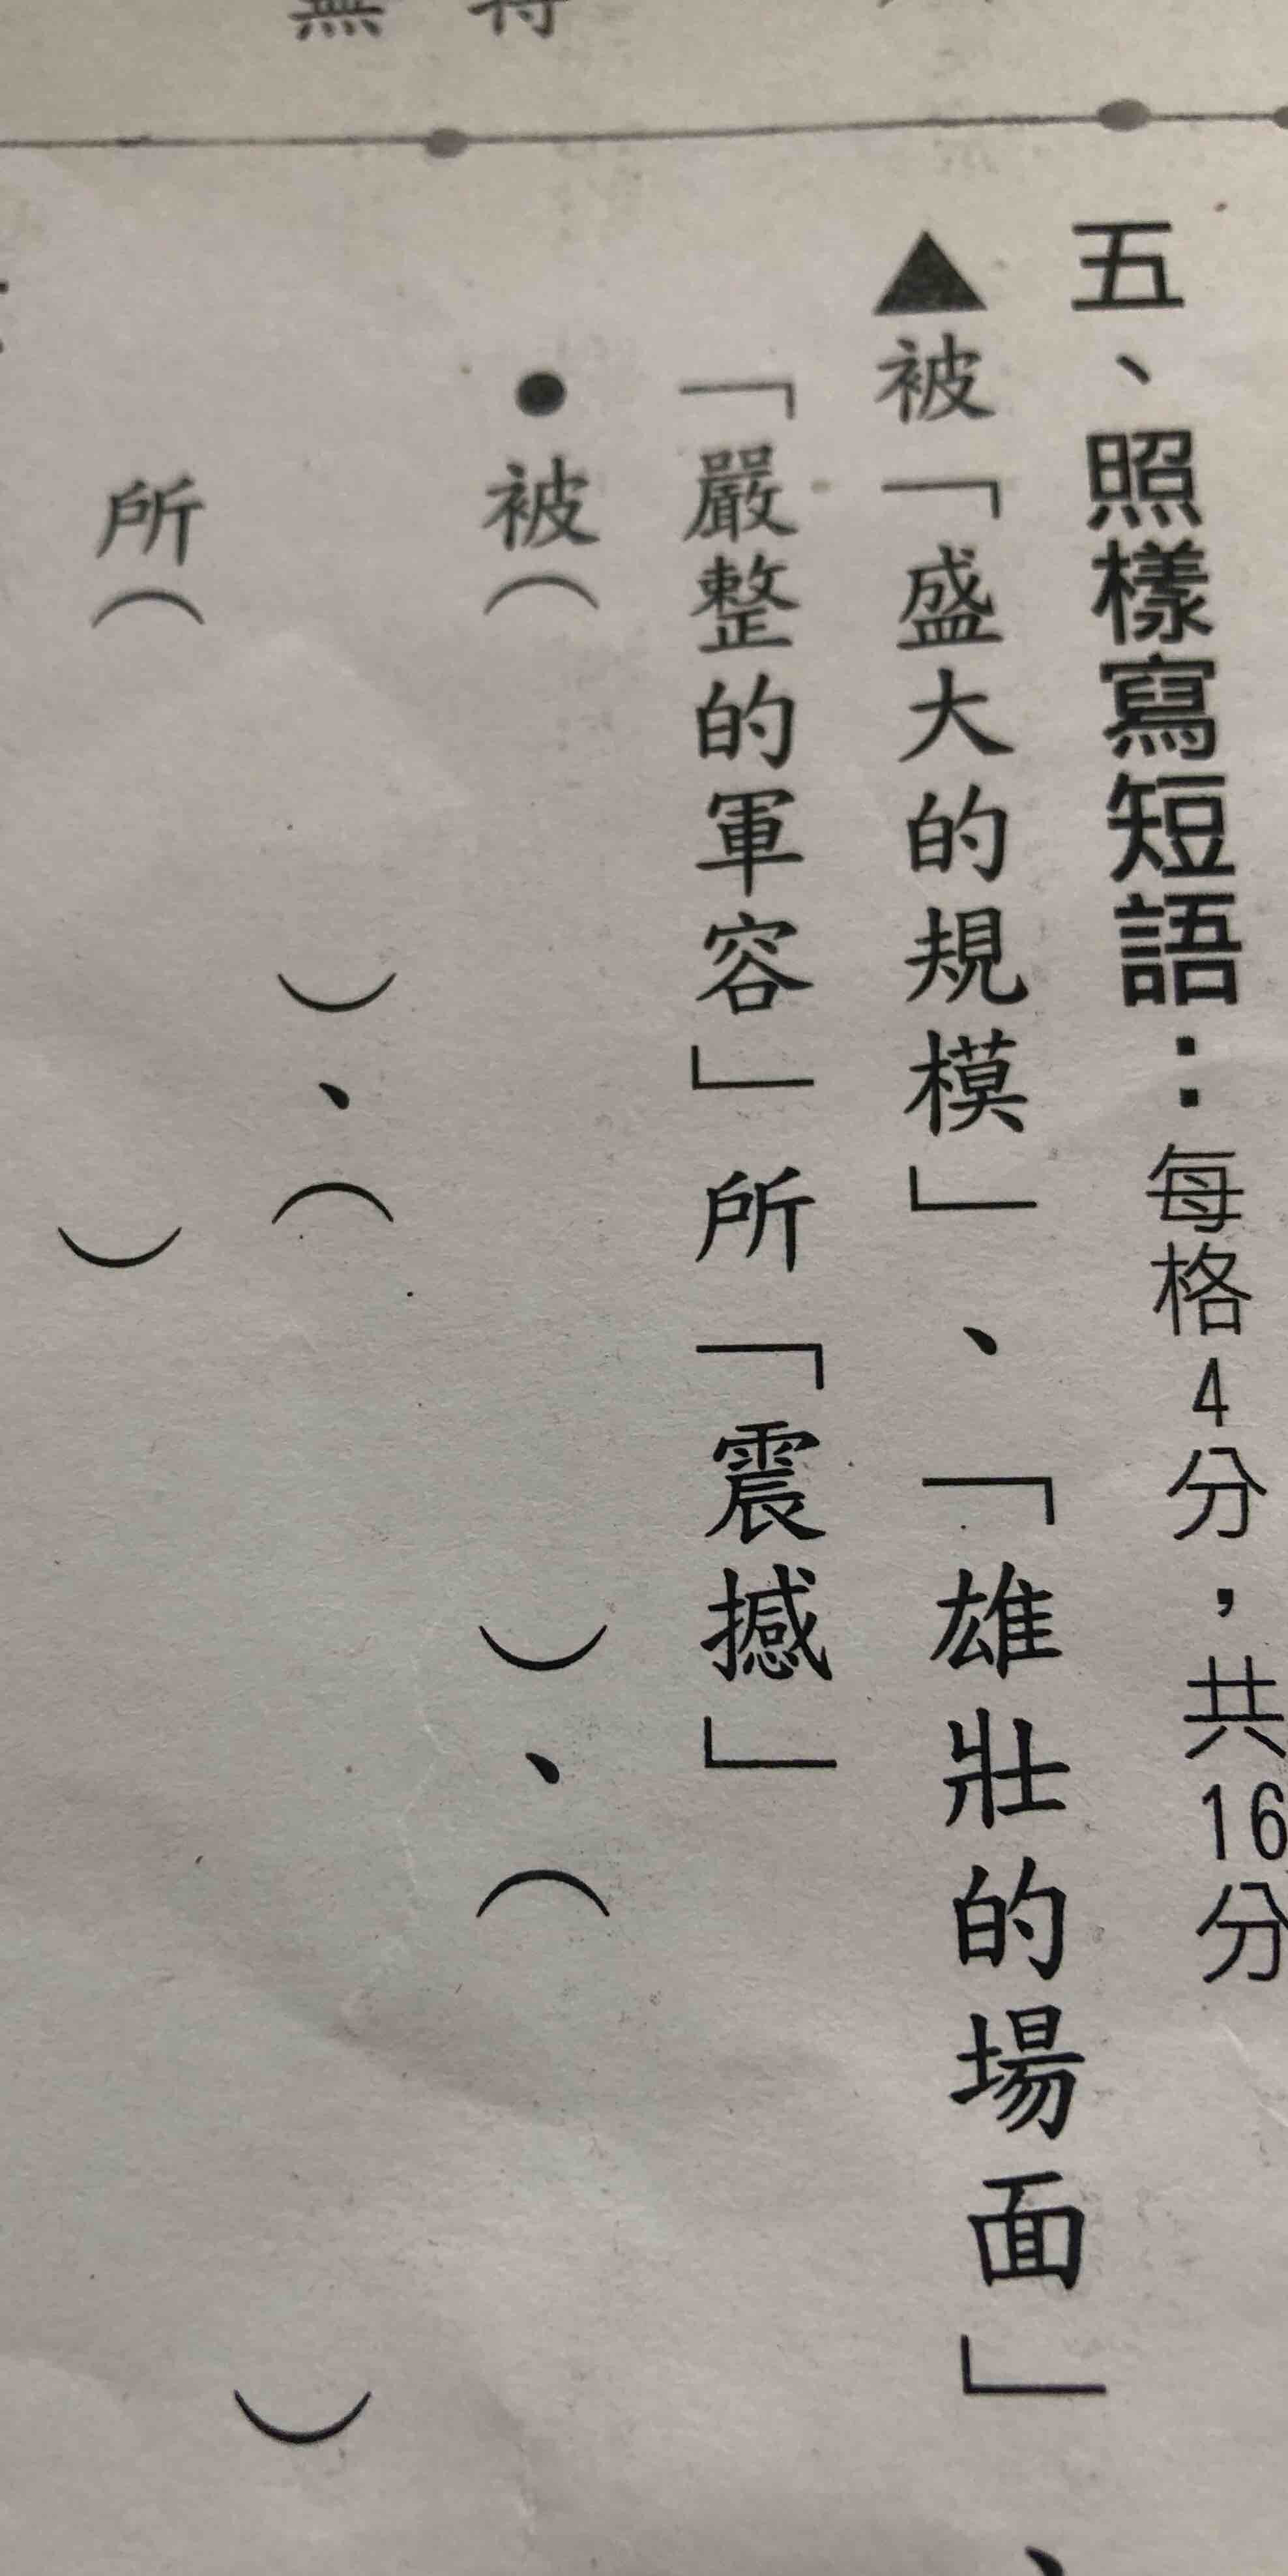 五、照樣寫短語：每格4分，共16分
▲被「盛大的規模」、「雄壯的場面」、
「嚴整的軍容」所「震撼」
●被（　　　）、（
　　）、（　　　）
所（　　　）